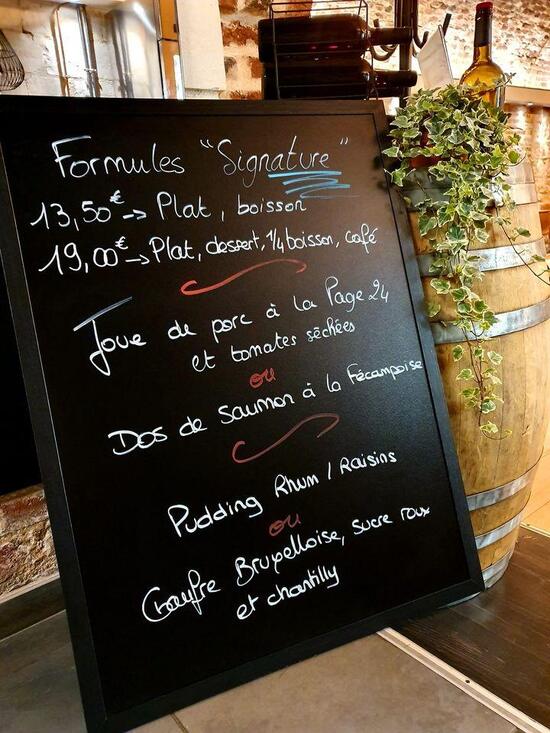 Formules "Signature"
13,50€ → Plat, boisson
19,00€ → Plat, dessert, 1/4 boisson, café
Joue de porc à la Page 24
et tomates séchées
ou
Dos de saumon à la Fécampoise
Pudding Rhum / Raisins
ou
Gaufre Bruxelloise, sucre roux
et chantilly